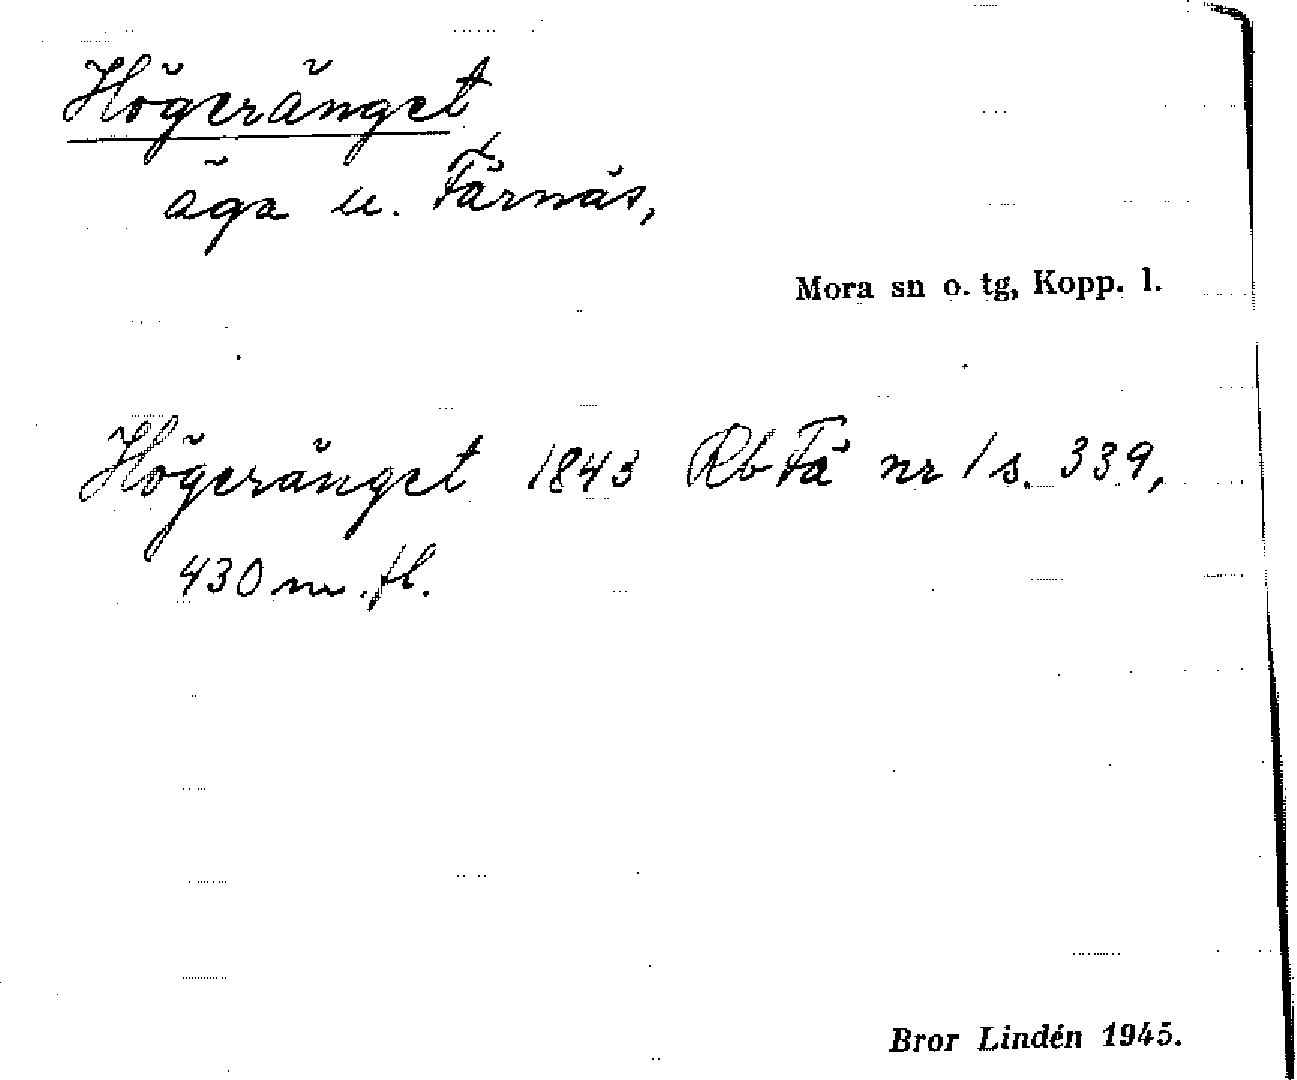 Högeränget
äga u. Färnäs,
Mora sn o. tg, Kopp. l.
Högeränget 1843 Rb Fä nr 1 s. 339,
430 m. fl.
Bror Lindén 1945.